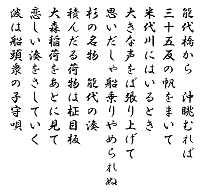 能代橋から　沖眺むれば
三十五反の帆をまいて
米代川にはいるとき
大きな声をば張り上げて
思いだしゃ船乗りやめられぬ
杉の名物　能代の湊
積んだる荷物は柾目板
大森稲荷をあとに見て
恋しい湊をさしていく
波は船頭衆の子守唄